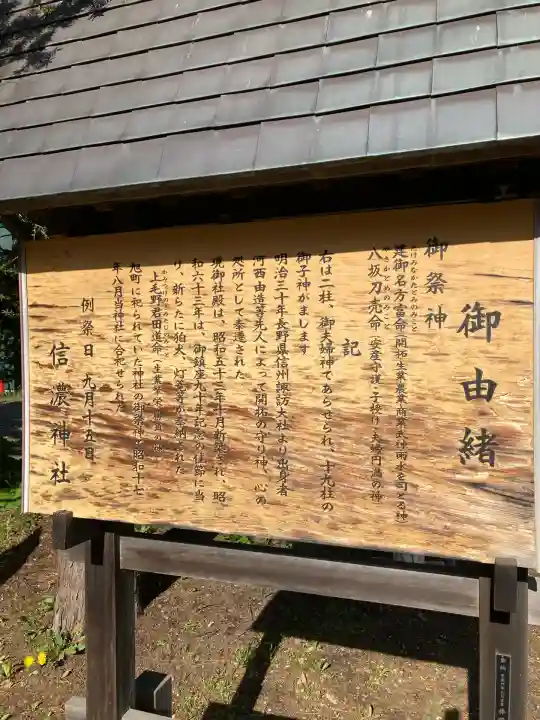 御由緒
御祭神
たけみなかたとみのみこと
建御名方富命（開拓生業農業商業武神雨水を司どる神
やさかとめのみこと
八坂刀売命（安産守護・子授け・夫婦円満の神
記
右は二柱、御夫婦神であらせられ、十九柱の
御子神がまします
明治三十年長野県信州諏訪大社より出身者
河西由造等先人によって開拓の守り神、心の
処所として奉遷された
現御社殿は、昭和五十三年十月新築され、昭
和六十三年は、御鎮座九十年記念の佳節に当
り、新らたに狛犬、灯篭等が奉納された
上毛野君田道命
旭町に祀られていた神社の御祭神を昭和十七
年八月当神社に合祀せられた
例祭日　九月十五日
信濃神社